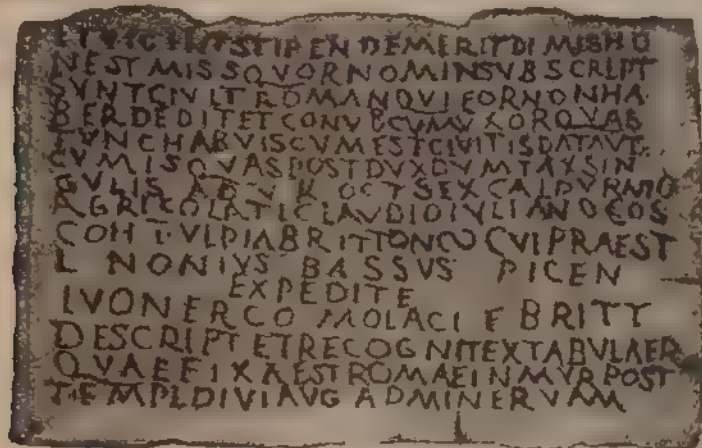 STIPENDEMERITDIMISHO
NESTMISSQVORNOMINSVBSCRIPT
SVNTCIVITROMANQVIEORNONHA
BERDEDITETCONVBCVMVXORQVAS
TVNCHABVISCVMESTCIVITISDATAVT
CVMISQVASPOSTDVXDVMTAXSIN
GVLIS OCTSEXCALPVRNIO
AGRICOLATICLAVDIOIVLIANOCOS
COHTVLPIABRITTONCO CVIPRAEST
L NONIVS BASSVS PICEN
EXPEDITE
IVONERCO MOLACI F BRITT
DESCRIPTETRECOGNITEXTABVLAER
QVAEFIXAESTROMAEINMVRPOST
TEMPLDIVIAVG ADMINERVAM